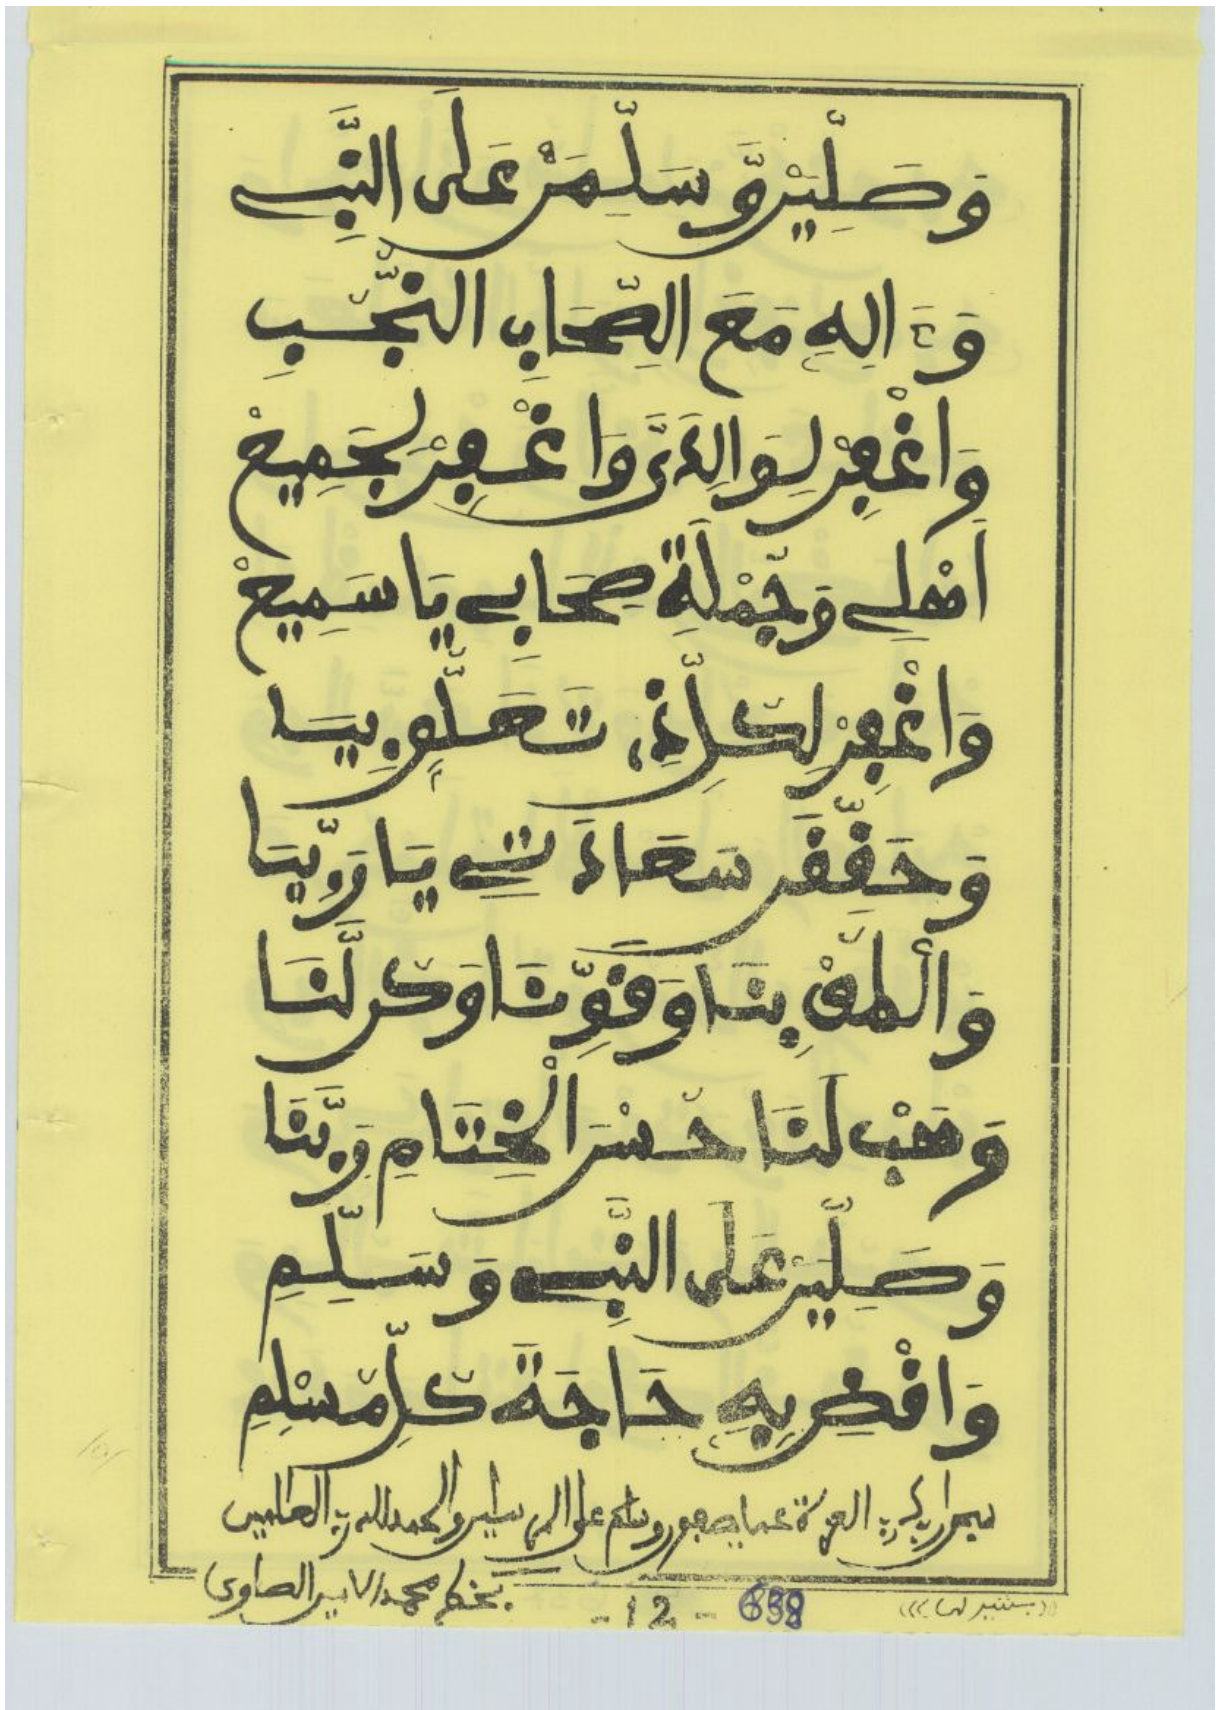 وَصَلِّيَنْ وَّسَلِّمَنْ عَلَى النَّبِي
وَءَالِهِ مَعَ الصِّحَابِ النُّجُبِ
وَاغْفِرْ لِوَالِدَيَّ وَاغْفِرْ لِجَمِيعْ
أَهْلِي وَجُمْلَةِ صِحَابِي يَا سَمِيعْ
وَاغْفِرْ لِكُلِّ ذِي تَعَلُّقٍ بِيَا
وَحَقِّقَن سَعَادَتِي يَا رَبِّيَا
وَالْطُفْ بِنَا وَقَوِّنَا وَكُن لَّنَا
وَهَبْ لَنَا حُسْنَ الْخِتَامِ رَبَّنَا
وَصَلِّيَنْ عَلَى النَّبِي وَسَلِّمِ
وَاقْضِ بِهِ حَاجَةَ كُلِّ مُسْلِمِ
سبحان ربك رب العزة عما يصفون وسلم على المرسلين والحمد لله رب العالمين
بخط محمد الامين الصاوى
- 12 -